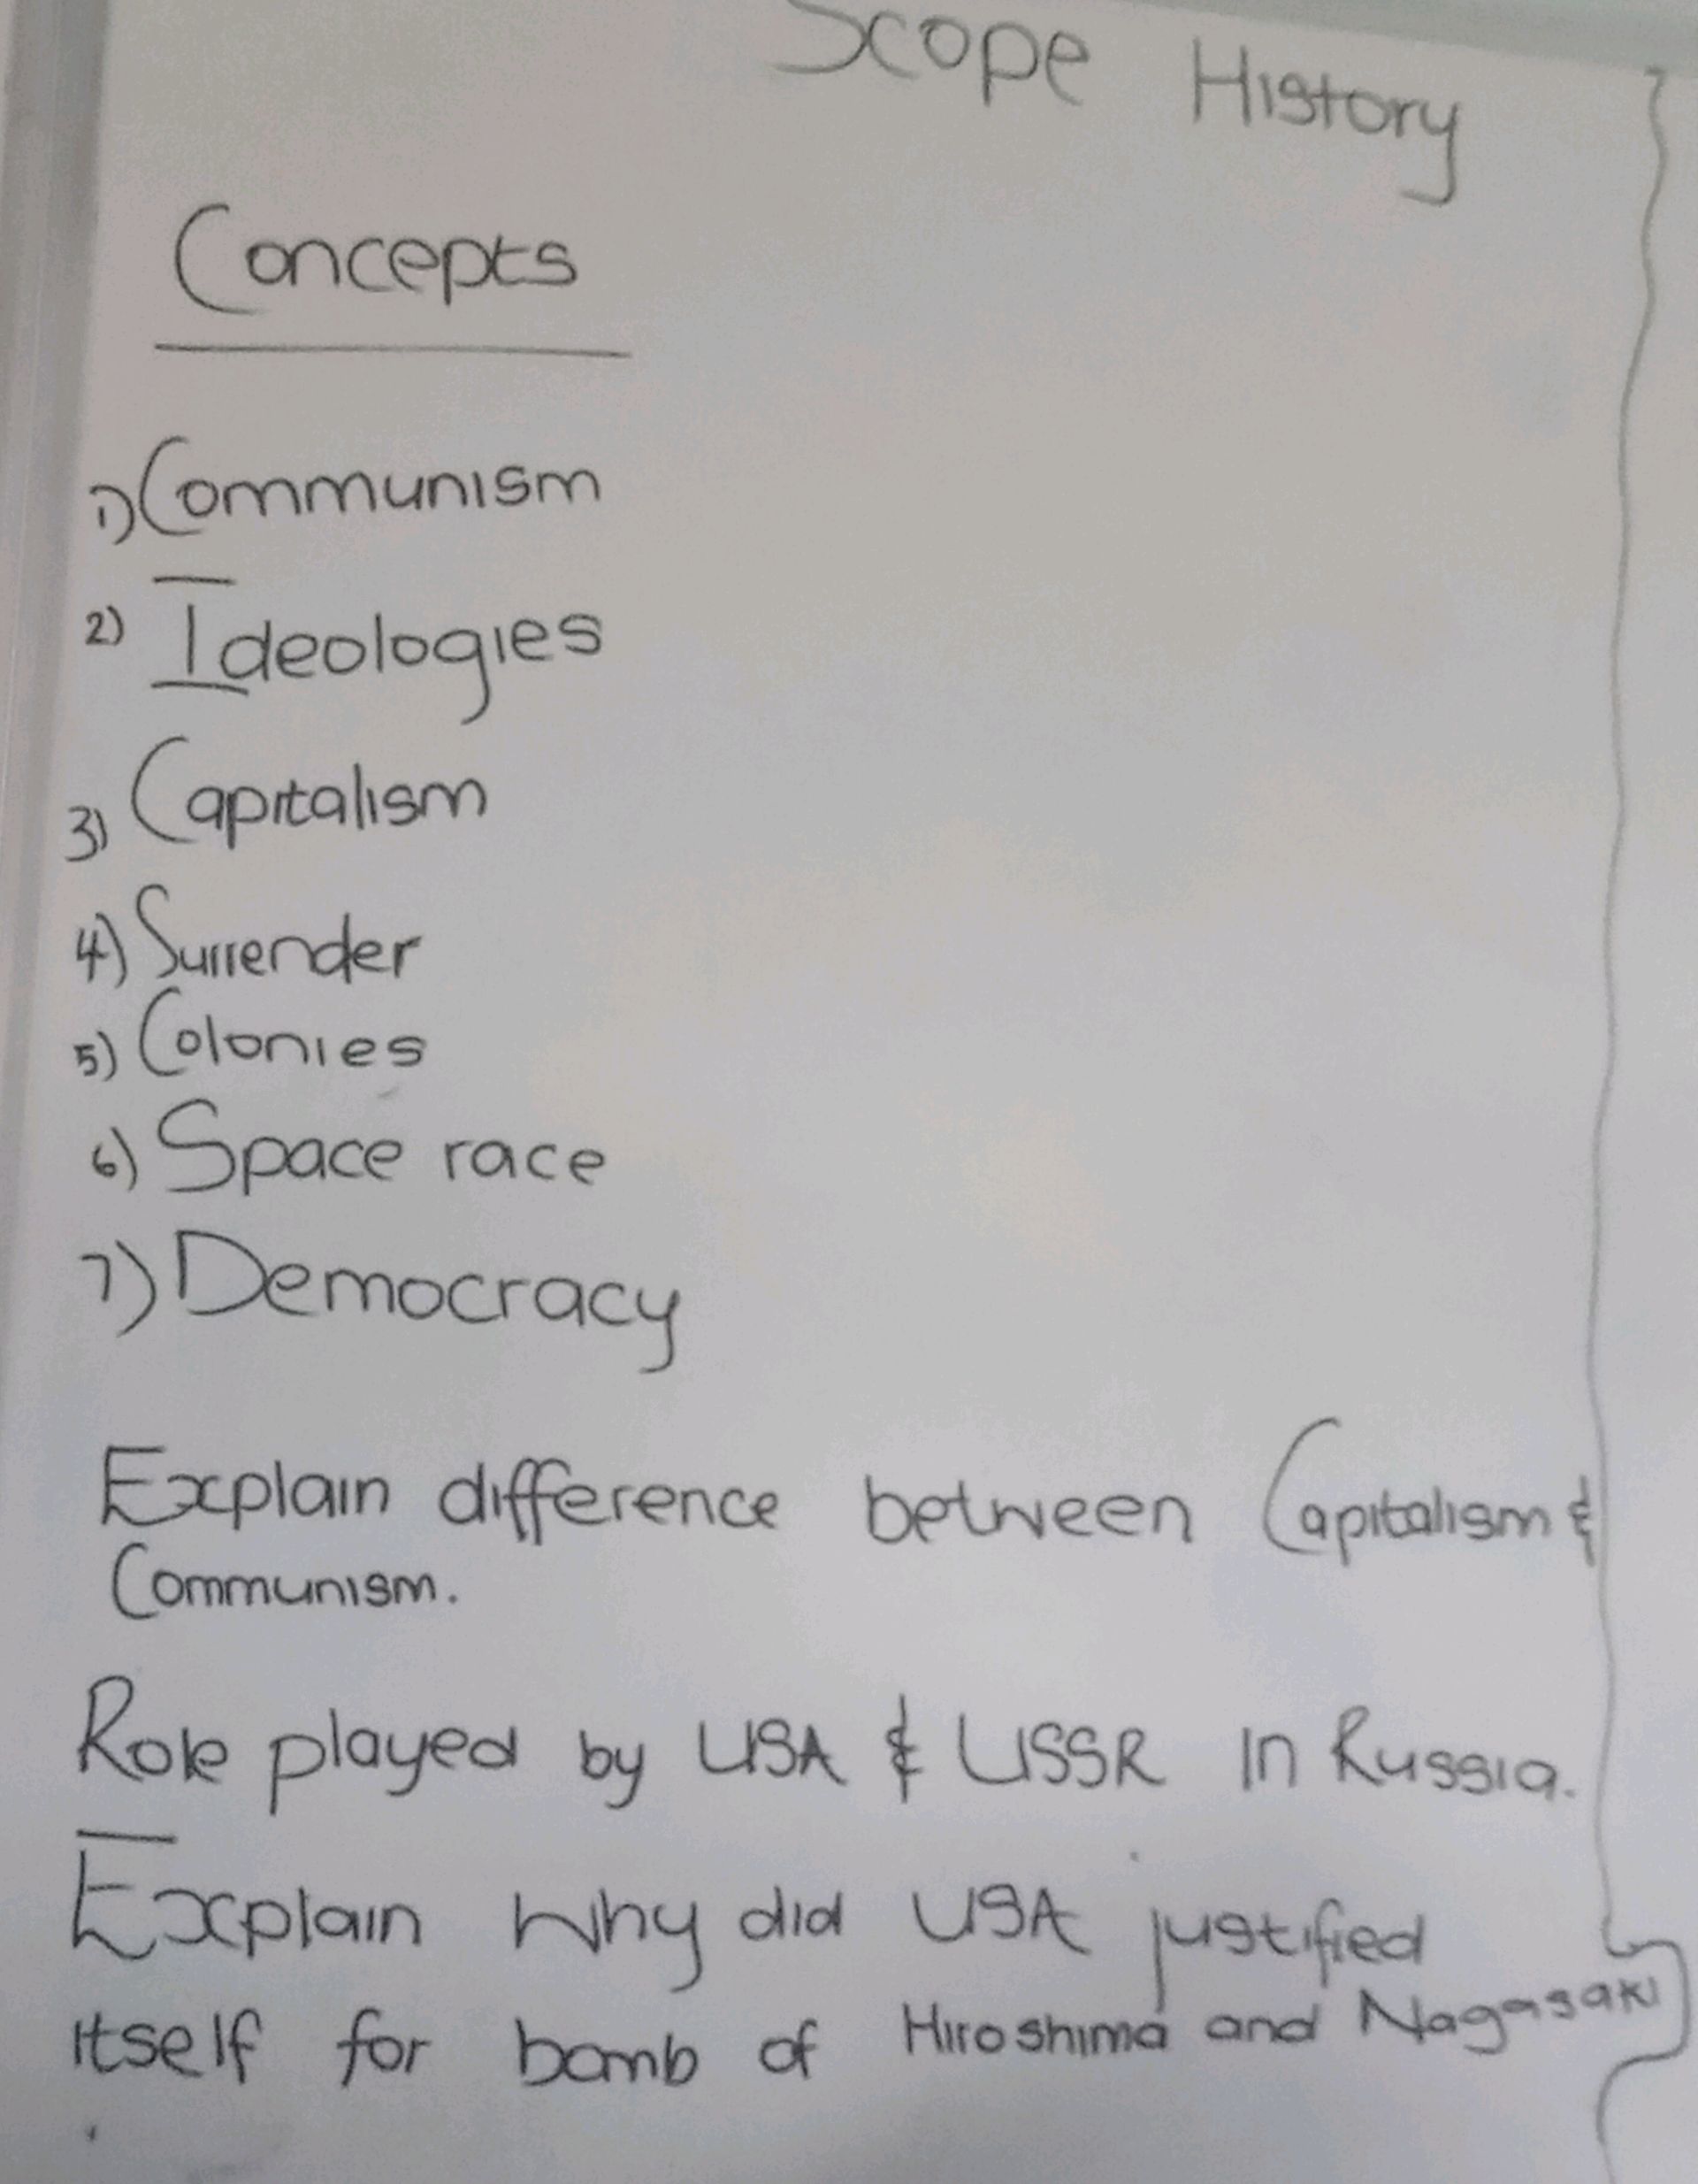 Scope History
Concepts
1) Communism
2) Ideologies
3) Capitalism
4) Surrender
5) Colonies
6) Space race
7) Democracy
Explain difference between Capitalism &
Communism.
Role played by USA & USSR in Russia.
Explain why did USA justified
itself for bomb of Hiroshima and Nagasaki